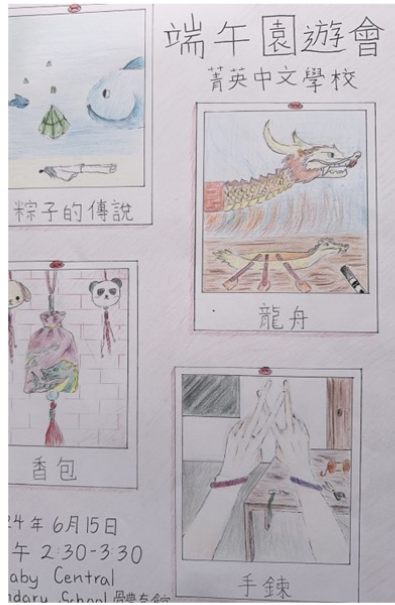 端午園遊會
菁英中文學校
粽子的傳說
龍舟
香包
手鍊
24年6月15日
午2:30-3:30
aby Central
ndary School 體育館